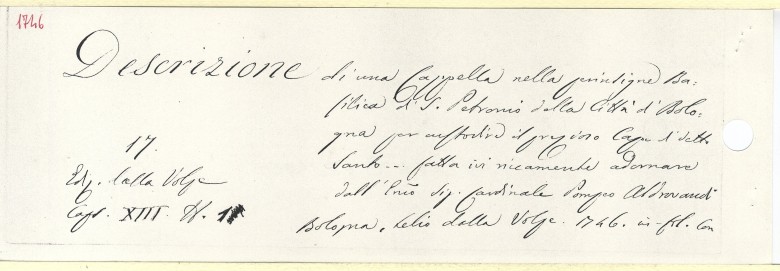 1746
Descrizione di una Cappella nella perinsigne Ba=
silica di S. Petronio della Città di Bolo=
gna per custodire il prezioso Capo di detto
Santo... fatta ivi ricamente adornare
dall' Emo Sig. Cardinale Pompeo Aldrovandi
Bologna, Lelio dalla Volpe. 1746. in-fol. Con
17.
Ediz. dalla Volpe
Caps. XIII. N.